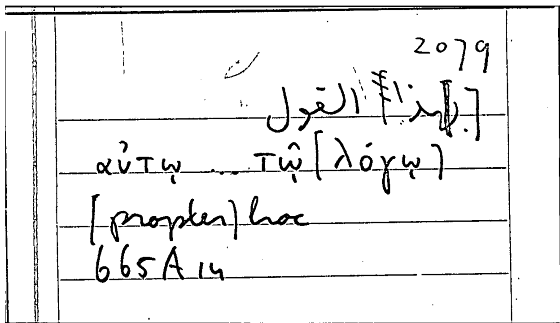 2079
[بهذا] القول
αὐτῳ ... τῷ [λόγῳ]
[propter] hoc
665A 14